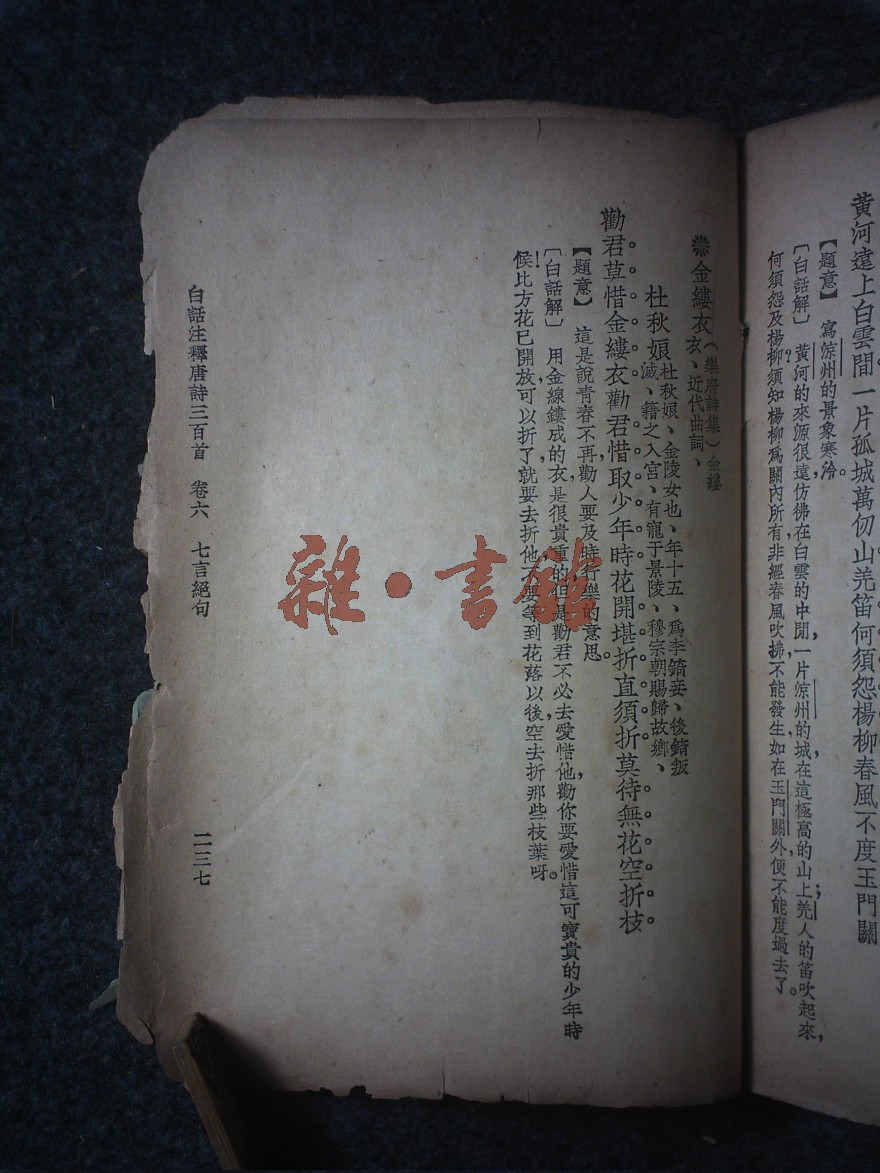 黄河遠上白雲間一片孤城萬仞山。羌笛何須怨楊柳春風不度玉門關
【題意】 寫涼州的景象寒冷。
〔白話解〕 黃河的來源很遠仿佛在白雲的中間,一片涼州的城在這極高的山上;羌人的笛吹起來,
何須怨及楊柳?須知楊柳爲關內所有,非經春風吹拂,不能發生,如在玉門關外,便不能度過去了。
❋金縷衣(樂府詩集)金縷
衣、近代曲詞、
杜秋娘杜秋娘、金陵女也、年十五、爲李錡妾、後錡叛
滅、籍之入宮、有寵于景陵、穆宗朝賜歸故鄉、
勸君莫惜金縷衣勸君惜取少年時花開堪折直須折莫待無花空折枝
【題意】 這是說青春不再,勸人要及時行樂的意思。
〔白話解〕 用金線鏤成的衣,是很貴重的,但是勸君不必去愛惜他,勸你要愛惜這可寶貴的少年時
候!比方花已開放,可以折了,就要去折他,不要等到花落以後,空去折那些枝葉呀。
白話注釋唐詩三百首 卷六 七言絕句
二三七
雜·書館